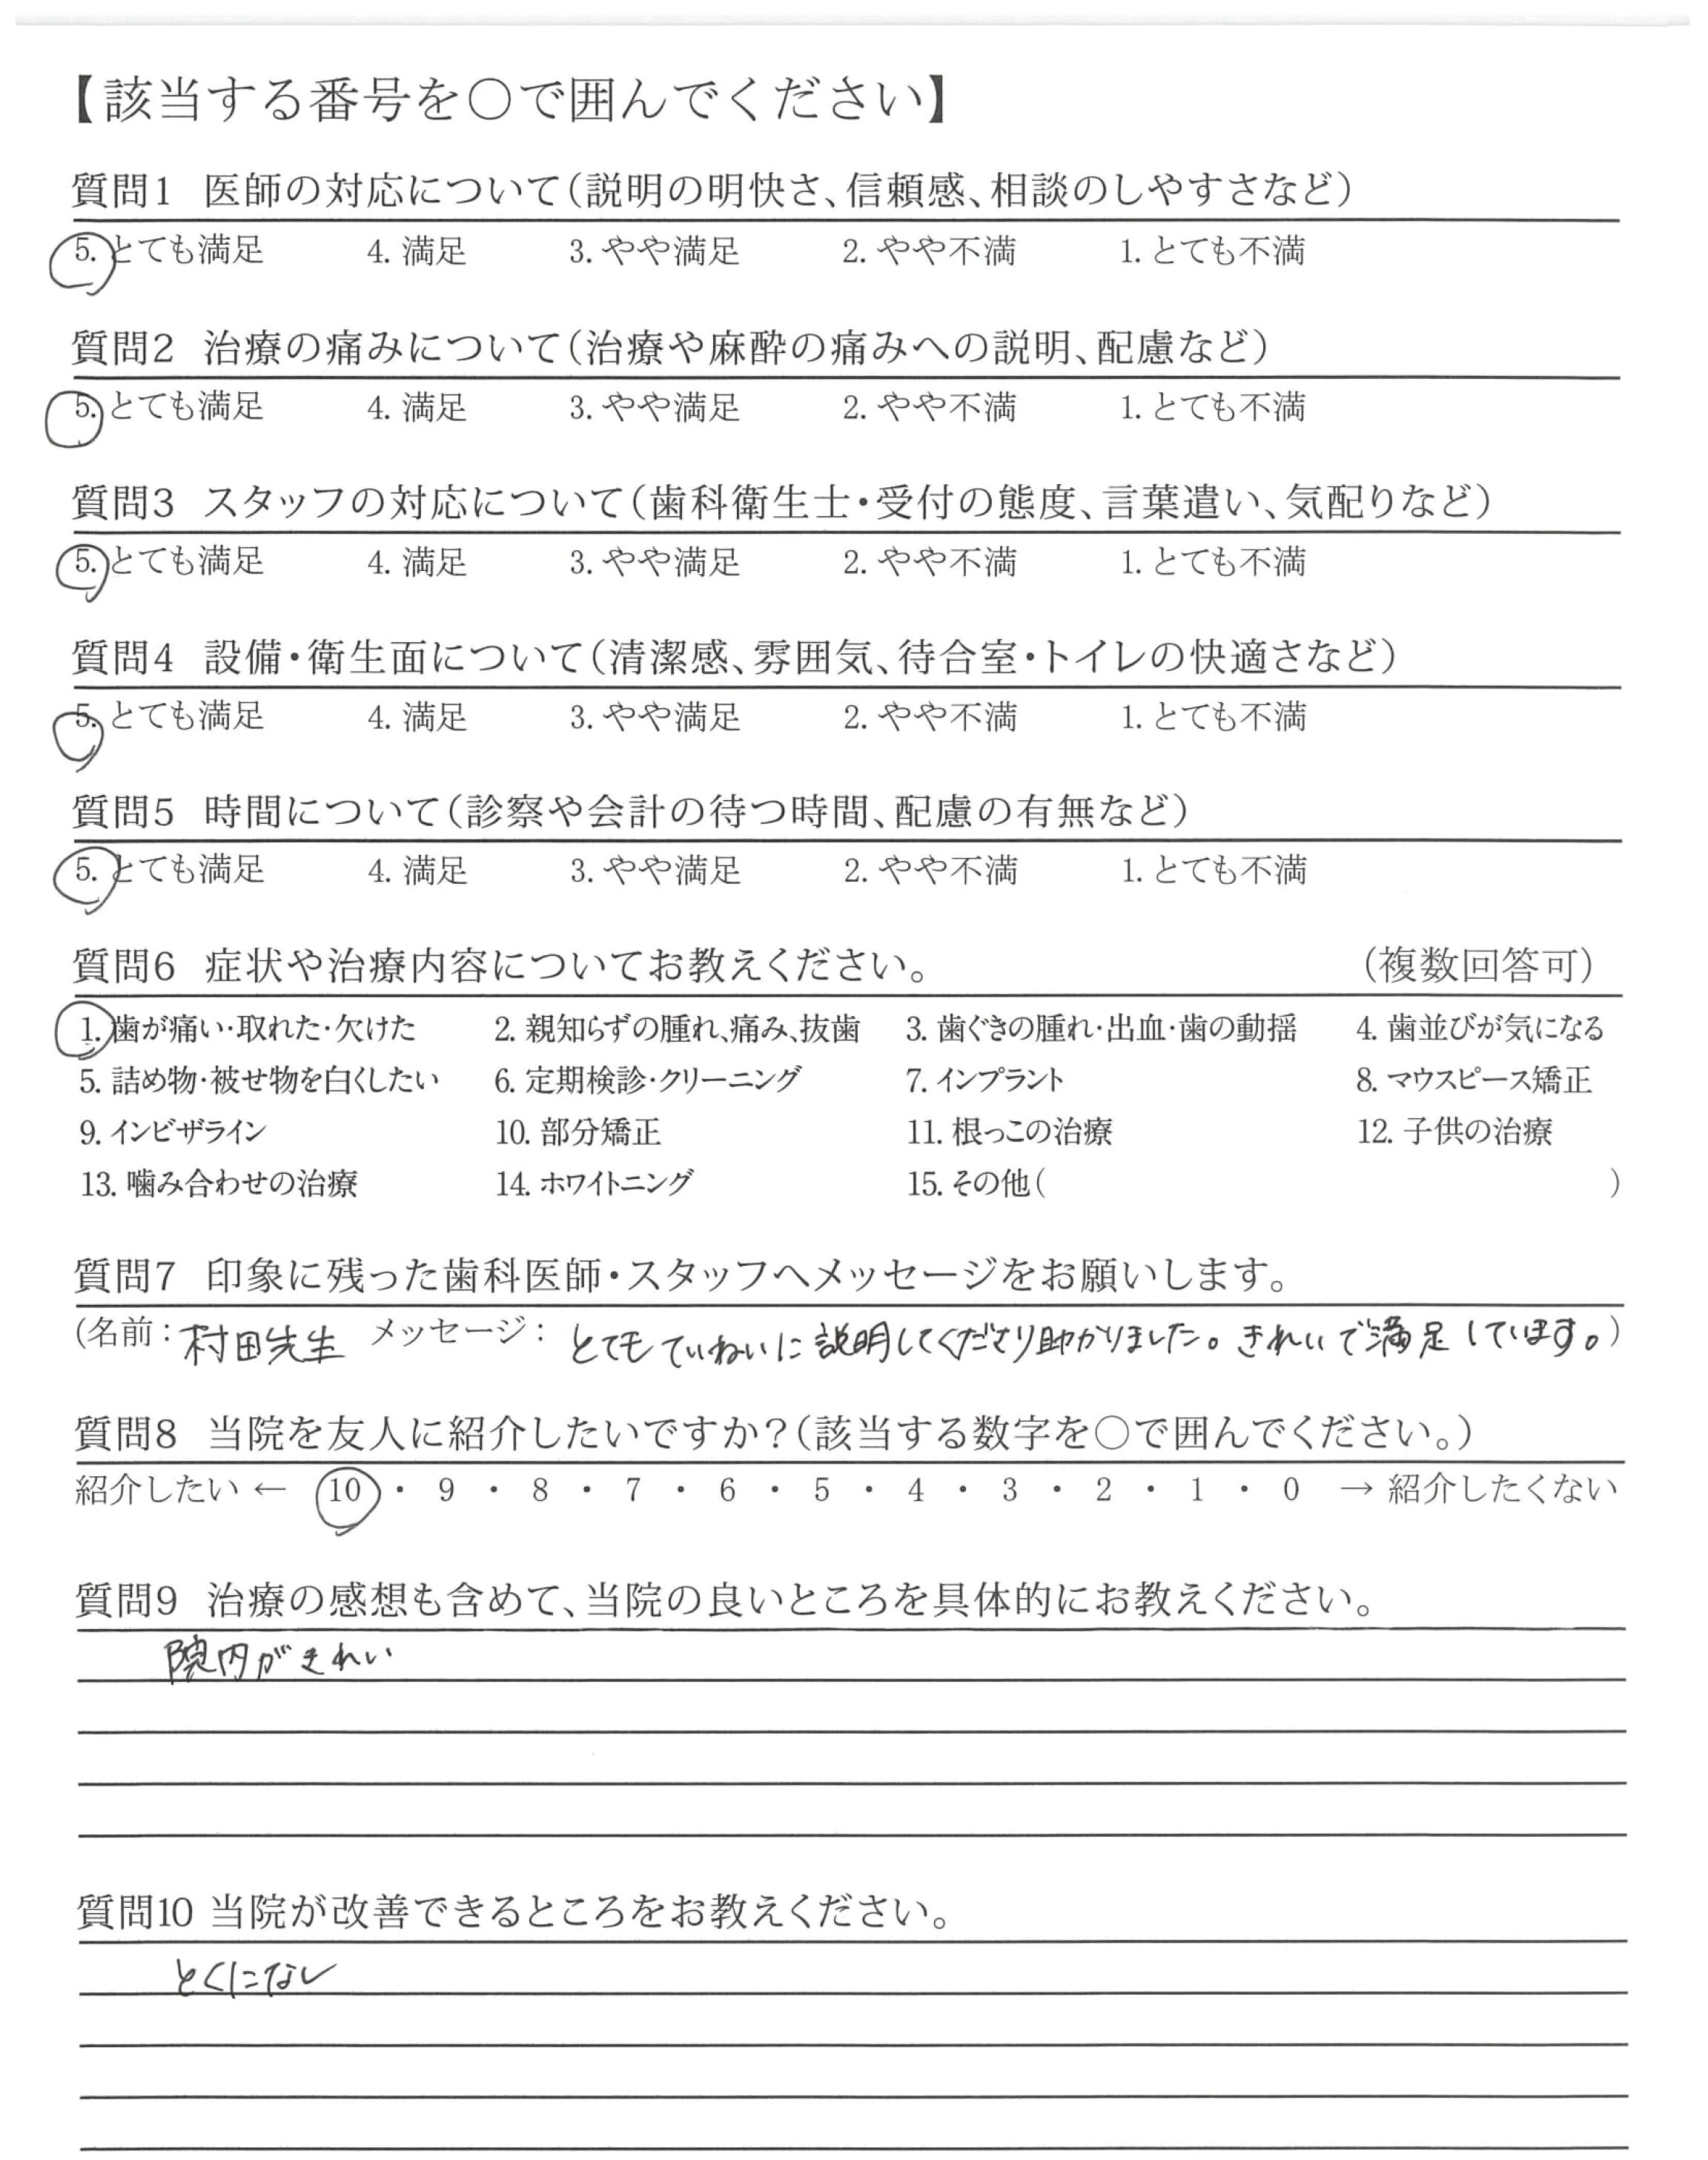 【該当する番号を〇で囲んでください】
質問1 医師の対応について（説明の明快さ、信頼感、相談のしやすさなど）
5. とても満足 4. 満足 3. やや満足 2. やや不満 1. とても不満
質問2 治療の痛みについて（治療や麻酔の痛みへの説明、配慮など）
5. とても満足 4. 満足 3. やや満足 2. やや不満 1. とても不満
質問3 スタッフの対応について（歯科衛生士・受付の態度、言葉遣い、気配りなど）
5. とても満足 4. 満足 3. やや満足 2. やや不満 1. とても不満
質問4 設備・衛生面について（清潔感、雰囲気、待合室・トイレの快適さなど）
5. とても満足 4. 満足 3. やや満足 2. やや不満 1. とても不満
質問5 時間について（診察や会計の待つ時間、配慮の有無など）
5. とても満足 4. 満足 3. やや満足 2. やや不満 1. とても不満
質問6 症状や治療内容についてお教えください。 （複数回答可）
1. 歯が痛い・取れた・欠けた 2. 親知らずの腫れ、痛み、抜歯 3. 歯ぐきの腫れ・出血・歯の動揺 4. 歯並びが気になる
5. 詰め物・被せ物を白くしたい 6. 定期検診・クリーニング 7. インプラント 8. マウスピース矯正
9. インビザライン 10. 部分矯正 11. 根っこの治療 12. 子供の治療
13. 噛み合わせの治療 14. ホワイトニング 15. その他（ ）
質問7 印象に残った歯科医師・スタッフへメッセージをお願いします。
（名前：村田先生 メッセージ：とてもていねいに説明してくださり助かりました。きれいで満足しています。）
質問8 当院を友人に紹介したいですか？（該当する数字を〇で囲んでください。）
紹介したい ← 10 ・ 9 ・ 8 ・ 7 ・ 6 ・ 5 ・ 4 ・ 3 ・ 2 ・ 1 ・ 0 → 紹介したくない
質問9 治療の感想も含めて、当院の良いところを具体的にお教えください。
院内がきれい
質問10 当院が改善できるところをお教えください。
とくになし